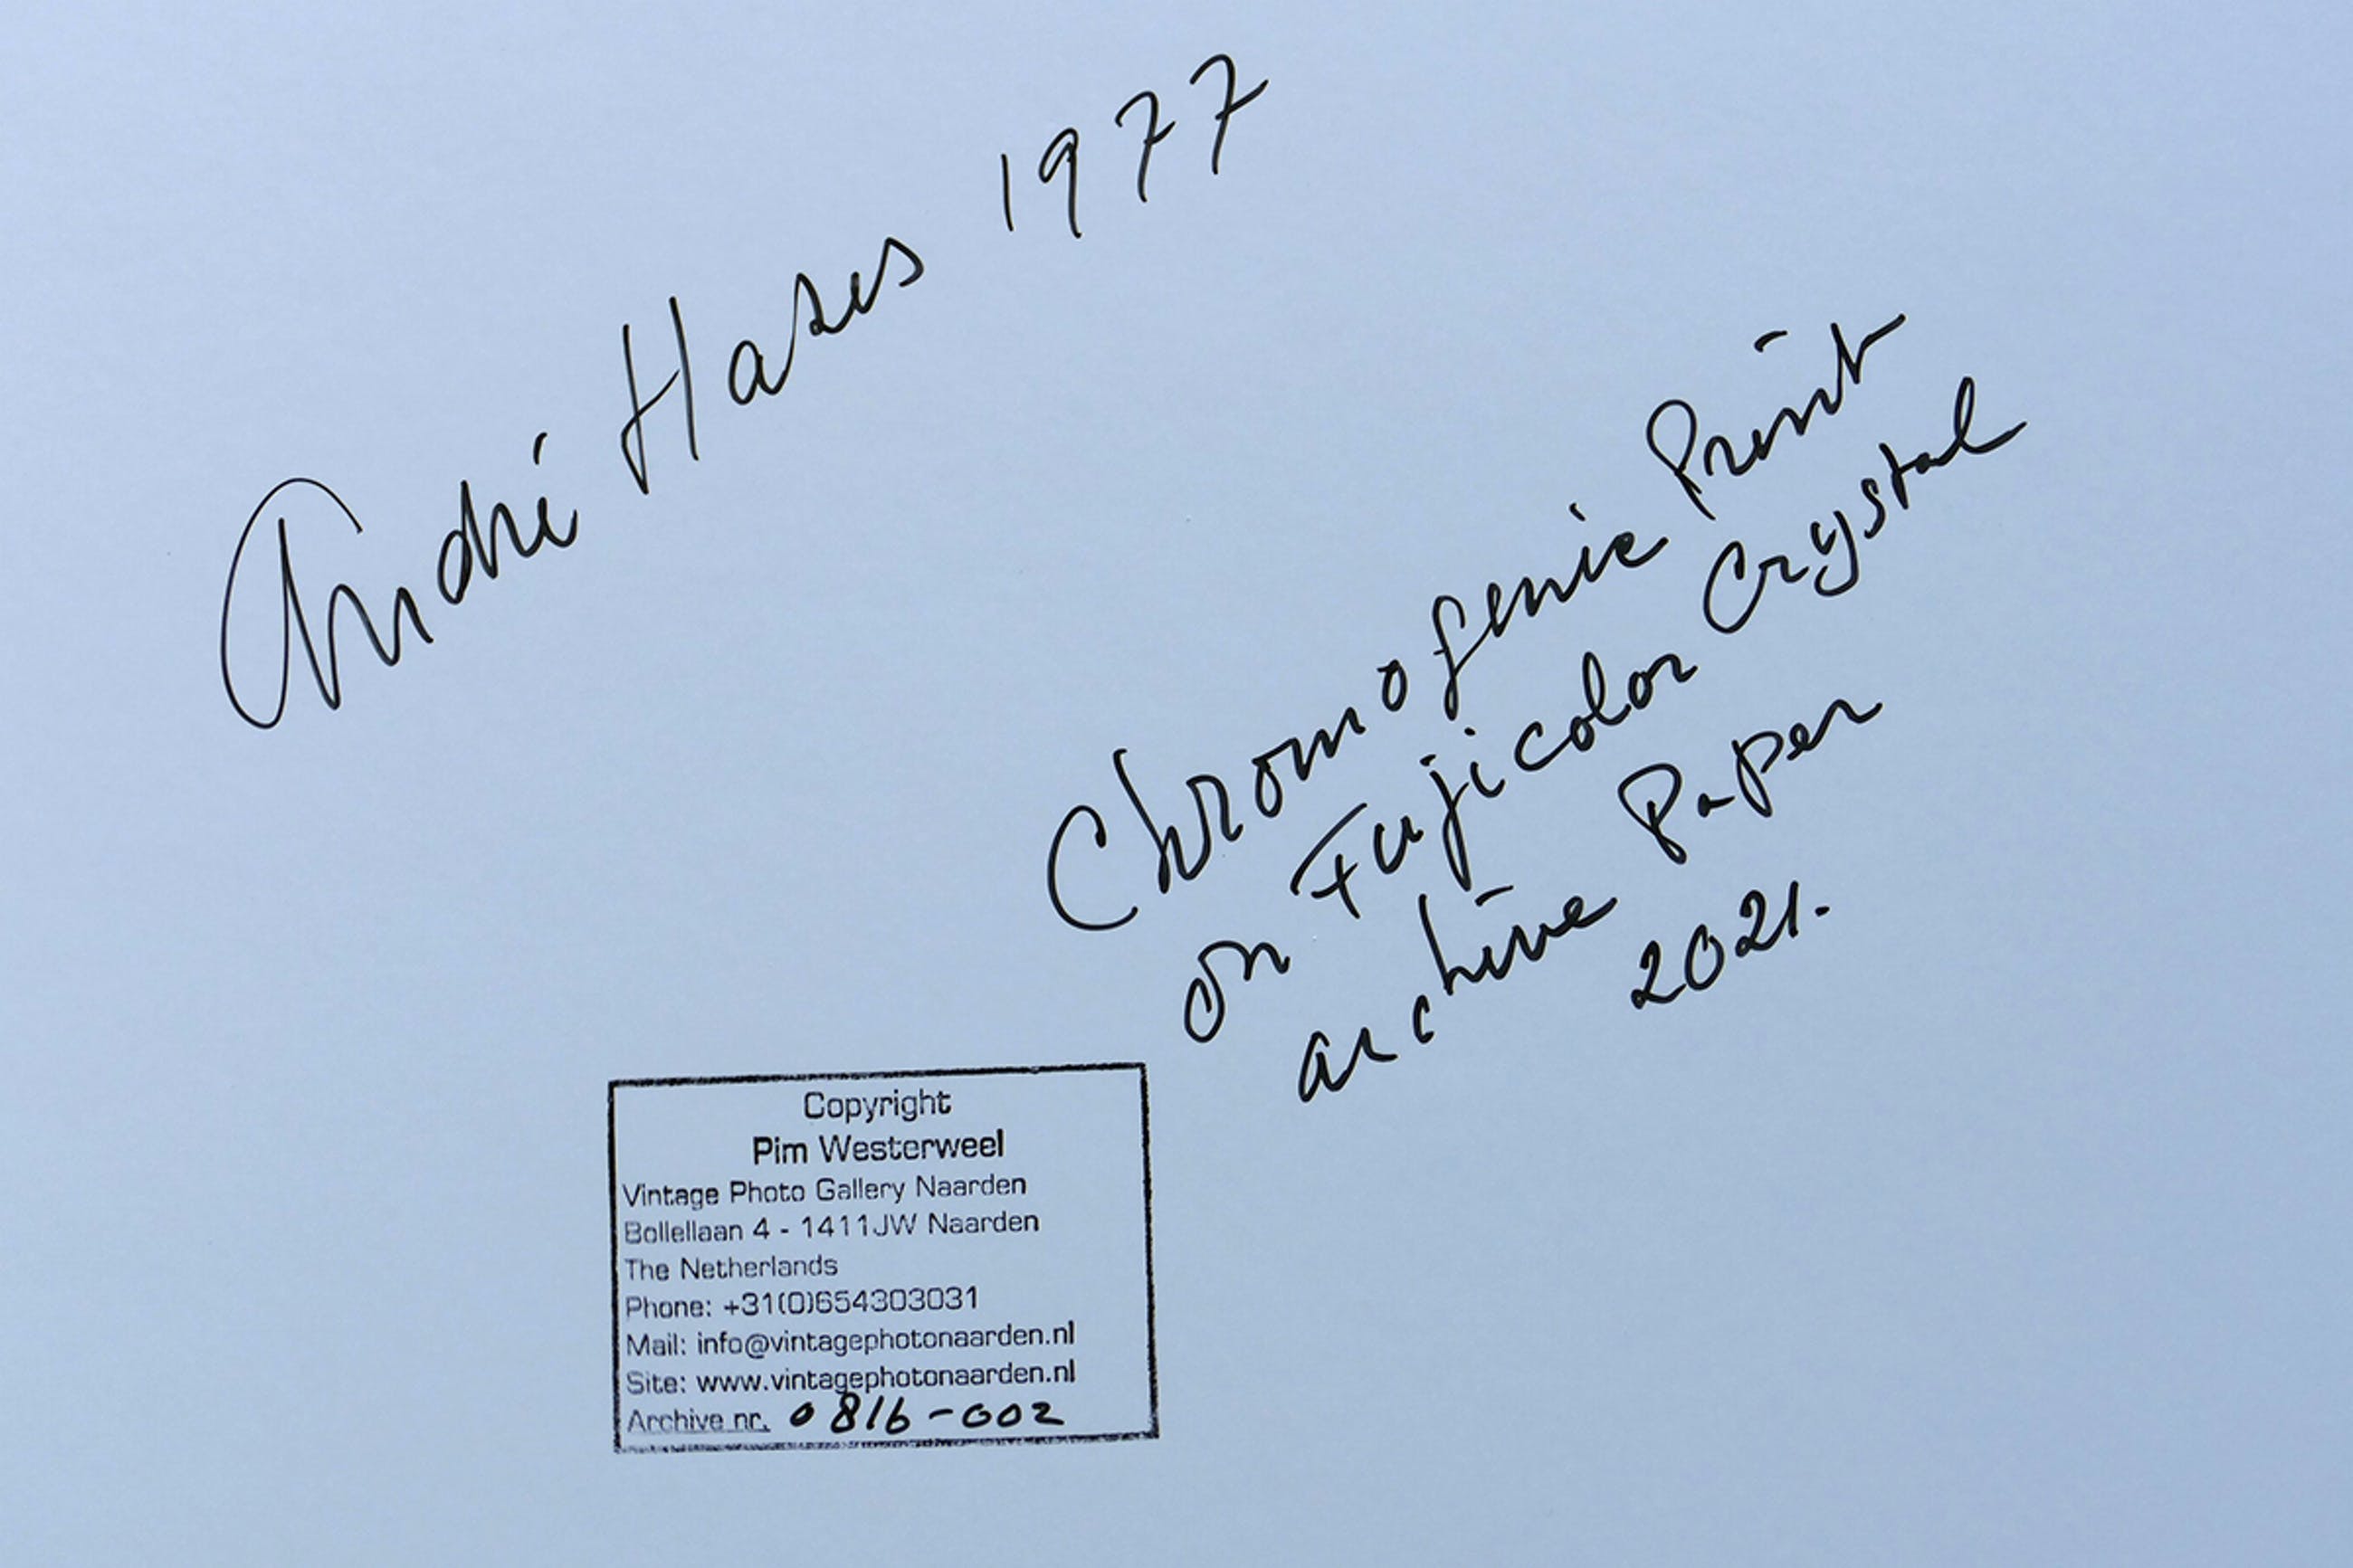 André Hazes 1977
Chromogenic Print
on Fujicolor Crystal
archive Paper
2021.
Copyright
Pim Westerweel
Vintage Photo Gallery Naarden
Bollellaan 4 - 1411JW Naarden
The Netherlands
Phone: +31(0)654303031
Mail: info@vintagephotonaarden.nl
Site: www.vintagephotonaarden.nl
Archive nr. 0816-002